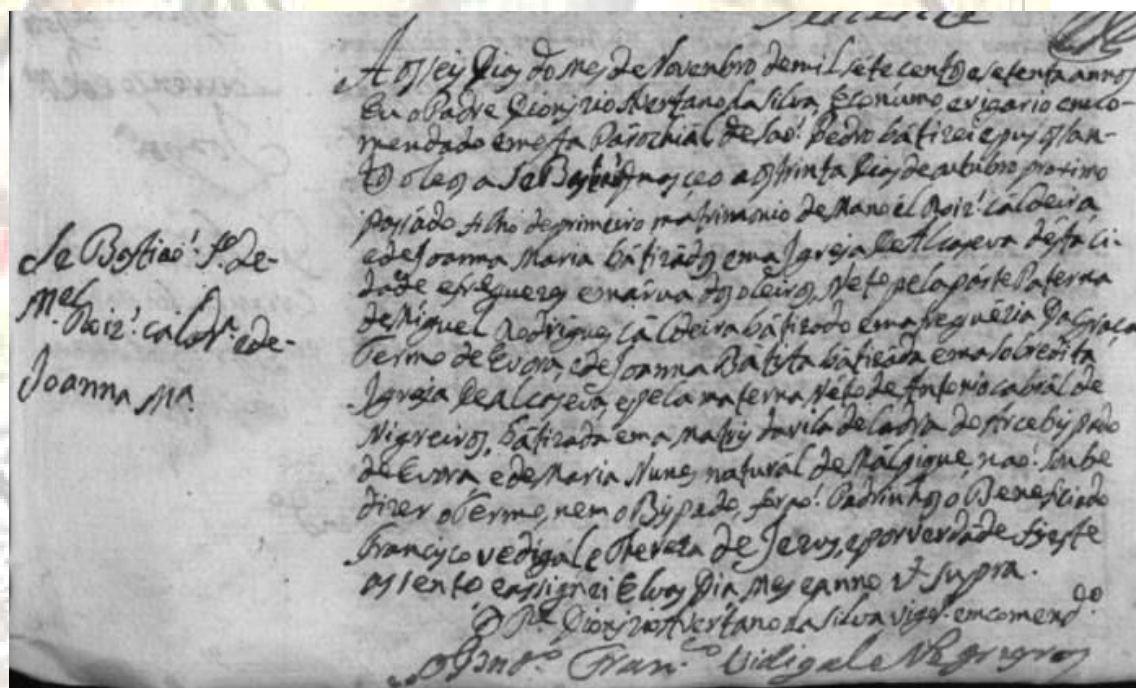 Se Bastiao! fo. de-
Mel. Roiz! caldra. e de-
Joanna Ma.
Aos seis Dias do Mes de Novenbro de mil sete centos e setenta annos
Eu o Padre Dionizio Avertano da silva, Econumo e vigario emco-
mendado em esta Parochial de Sao! Pedro bâtizei e puz os san-
tos oleos a Se Bastiao! q nasceo aos trinta Dias de outubro proximo
passado filho de primeiro matrimonio de Manoel Roiz! caldeira
e de Joanna Maria bâtizados em a Igreja De Alcaseva desta ci-
dade e freguezes em a rua dos oleiros, Neto pela parte Paterna
de Miguel Rodrigues Câldeira bâtizado em a freguezia Da Graça
termo de Evora, e de Joanna Batista bâtizada em a sobredita
Igreja De Alcaseva, e pela materna Neto de Antonio cabral de
Nigreiros, bâtizada em a Matriz da vila de Cabra do Arcebispado
de Evora e de Maria Nunes natural de Malpique, nao! soube
dizer o termo, nem o Bispado, forao! Padrinhos o Beneficiado
Francisco vedigal e Thereza de Jezus, e por verdade fiz este
assento e assignei Elvas Dia Mes e anno vt supra.
O Pe. Dionizio Avertano da silva vigro. emcomendo.
Franco. Vidigal e Negreyros